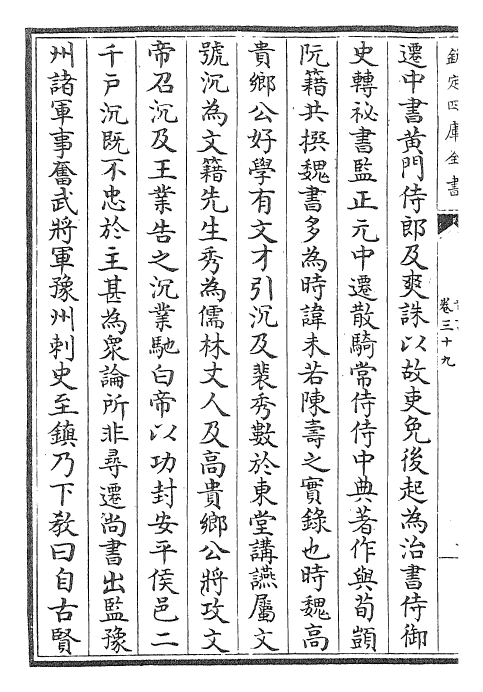 欽定四庫全書
卷三十九
遷中書黄門侍郎及爽誅以故吏免後起為治書侍御
史轉祕書監正元中遷散騎常侍侍中典著作與荀顗
阮籍共撰魏書多為時諱未若陳壽之實錄也時魏高
貴鄉公好學有文才引沉及裴秀數於東堂講讌屬文
號沉為文籍先生秀為儒林丈人及高貴鄉公將攻文
帝召沉及王業告之沉業馳白帝以功封安平侯邑二
千戸沉既不忠於主甚為衆論所非尋遷尚書出監豫
州諸軍事奮武將軍豫州刺史至鎮乃下教曰自古賢